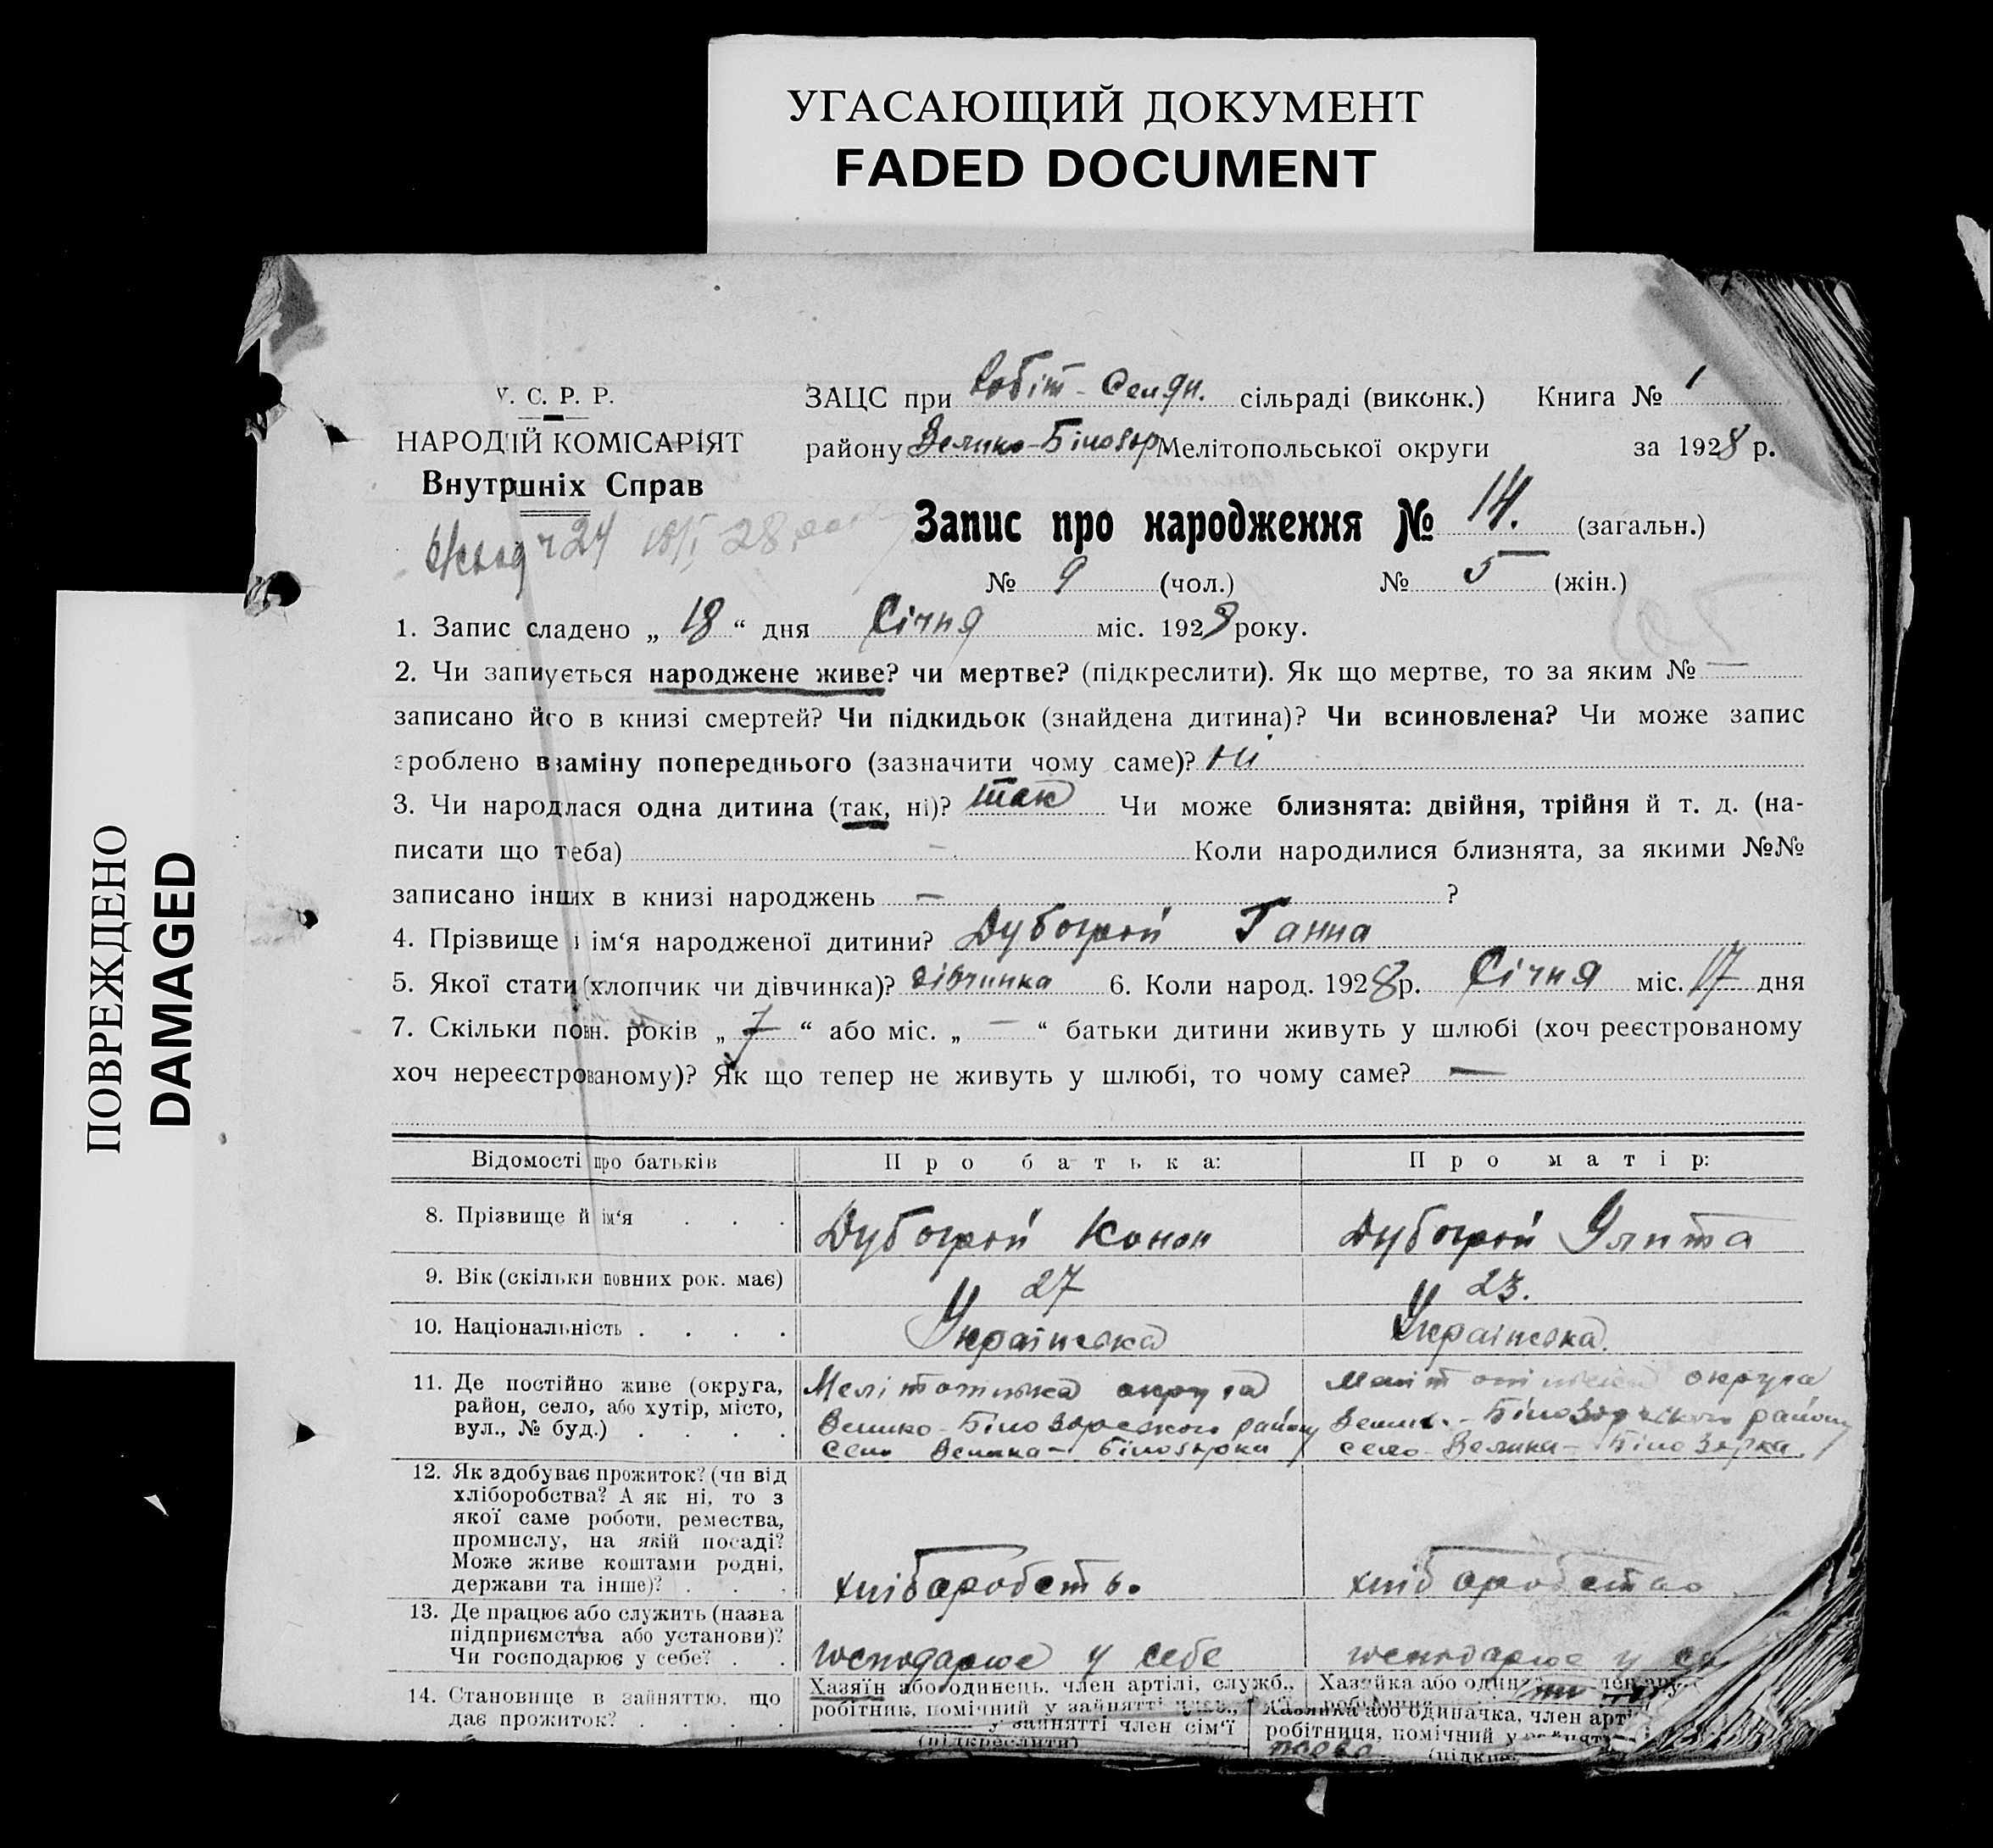 УГАСАЮЩИЙ ДОКУМЕНТ
FADED DOCUMENT
ПОВРЕЖДЕНО
DAMAGED
У. С. Р. Р.
НАРОДНІЙ КОМІСАРІЯТ
Внутрішніх Справ
ЗАЦС при сільраді (виконк.) Книга № 1
району Велико-Білозор Мелітопольської округи за 1928 р.
Запис про народження № 14. (загальн.)
№ 9 (чол.) № 5 (жін.)
1. Запис складено „ 18 “ дня Січня міс. 1928 року.
2. Чи записується народжене живе? чи мертве? (підкреслити). Як що мертве, то за яким № —
записано його в книзі смертей? Чи підкидьок (знайдена дитина)? Чи всиновлена? Чи може запис
зроблено взаміну попереднього (зазначити чому саме)? Ні
3. Чи народилася одна дитина (так, ні)? так Чи може близнята: двійня, трійня й т. д. (на-
писати що треба) — Коли народилися близнята, за якими №№
записано інших в книзі народжень — ?
4. Прізвище і ім‘я народженої дитини? Дубогрій Ганна
5. Якої стати (хлопчик чи дівчинка)? дівчинка 6. Коли народ. 1928 р. Січня міс. 17 дня
7. Скільки повн. років „ 7 “ або міс. „ — “ батьки дитини живуть у шлюбі (хоч реєстрованому
хоч нереєстрованому)? Як що тепер не живуть у шлюбі, то чому саме? —
Відомості про батьків Про батька: Про матір:
8. Прізвище й ім‘я . . . Дубогрій Конон Дубогрій Улита
9. Вік (скільки повних рок. має) 27 23.
10. Національність . . . . Українська Українська.
11. Де постійно живе (округа, Мелітопільська округа Мелітопільська округа
район, село, або хутір, місто, Велико-Білозорського району Велико-Білозорського району
вул., № буд.) . . . . село Велика-Білозорка село Велика-Білозорка.
12. Як здобуває прожиток? (чи від
хліборобства? А як ні, то з
якої саме роботи, ремества,
промислу, на якій посаді?
Може живе коштами родні,
держави та інше)? . . . хліборобств. хліборобство
13. Де працює або служить (назва
підприємства або установи)?
Чи господарює у себе? . . господарює у себе господарює у
14. Становище в зайняттю, що Хазяїн або одинець, член артілі, служб., Хазяйка або
дає прожиток? . . . . робітник, помічний у зайнятті
у зайнятті член сім‘ї Хазяйка або одиначка, член арті
(підкреслити) робітниця, помічний у